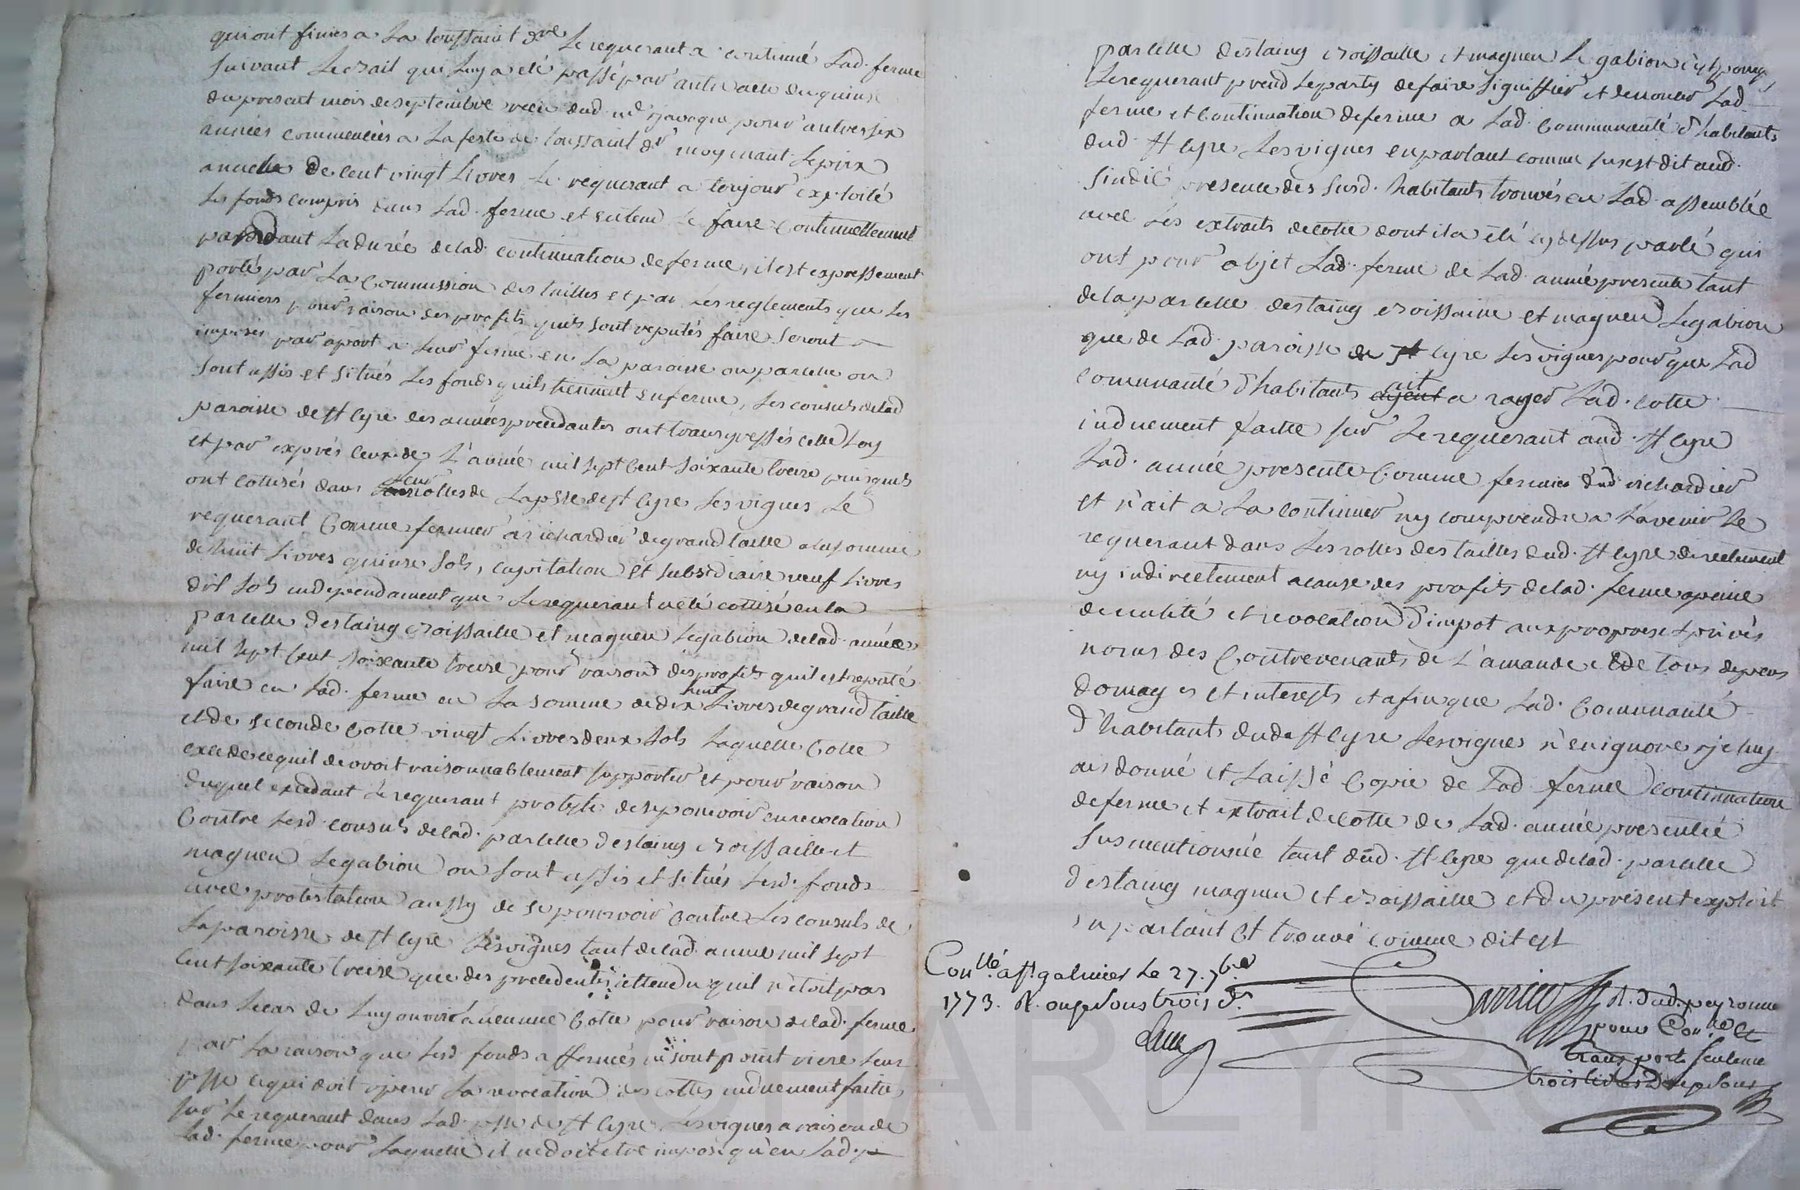 qui ont finies a La toussaint dre Le requerant a continué Lad. ferme
suivant Le bail qui Luy a été passé par autre acte du quinse
du present mois de septembre receu dud. me pour autres six
années commencées a La feste de toussaint dre moyenant Le prix
annelle de Cent vingt Livres Le requerant a toujour exploité
Les fonds compris dans Lad. ferme et entend Le faire Continuellement
pandant La durée delad. continuation de ferme, il est expressement
porté par La Commission des tailles et par Les reglements que Les
fermiers pour raison des profits quils sont reputés faire seront
imposés par aport a Leur ferme en La paroisse ou parcelle ou
sont assis et situés Les fonds quils tiennent en ferme, Les consuls delad
paroisse de st Cyre des années precedantes ont transgressés cette Loy
et par exprés ceux de L'année mil sept Cent soixante treise puisquils
ont cottisés dans Leur rolles de La psse de st Cyre Les vignes Le
requerant Comme fermier a richardier de grand taille a La somme
de huit Livres quinse sols, capitation et subsidiaire neuf Livres
dix sols independament que Le requerant a eté cottisé en La
parcelle destaing croissaille et magnieu Legabion delad. année
mil sept Cent soixante treise pour raison des profits quil est reputé
faire en Lad. ferme en La somme de dix huit Livres de grand taille
et de seconde Cotte vingt Livres deux sols Laquelle Cotte
excede ce quil devroit raisonnablement supporter et pour raison
duquel excedant Le requerant proteste de se pourvoir en revocation
Contre Lesd. consuls delad. parcelle destaing croissaille et
magnieu Legabion ou sont assis et situés Lesd. fonds
avec protestation aussy de se pourvoir Contre Les consuls de
La paroisse de st Cyre Lesvignes tant delad. année mil sept
Cent soixante treise que des precedentes attendu quil n'étoit pas
dans Le cas de Luy ouvrir aucunne Cotte pour raison delad. ferme
par La raison que Lesd fonds affermés ne sont point riere Leur
psse ce qui doit operer La revocation des cottes induement faites
sur Le requerant dans Lad. psse de st Cyre Lesvignes a raison de
Lad. ferme pour Laquelle il ne doit etre imposé qu'en Lad. p
parcelle destaing croissaille et magnieu Le gabion c'est pourquoy
Le requerant prend Le party de faire signiffier et denoncer Lad
ferme et Continuation de ferme a Lad. Communauté d'habitants
dud. st Cyre Lesvignes en parlant comme susest dit aud.
sindic presence des susd. habitants trouvés en Lad. assemblée
avec Les extraits de cotte dont il a été cy dessus parlé qui
ont pour objet Lad. ferme de Lad. année presente tant
de la parcelle destaing croissaille et magnieu Legabion
que de Lad. paroisse de st Cyre Lesvignes pour que Lad
Communauté d'habitants ait a rayer Lad. cotte
induement faitte sur Le requerant aud. st Cyre
Lad. année presente Comme fermier dud richardier
et n'ait a La continuer ny comprendre a L'avenir Le
requerant dans Les rolles des tailles dud. st Cyre directement
ny indirectement a cause des profits delad. ferme a peine
de nullité et revocation d'impot aux propres et privés
noms des Contrevenants de L'amande et de tous depens
domages et interests et afin que Lad. Communauté
d'habitant dud. st Cyre Lesvignes n'en ignore je Luy
ais donné et Laissé Copie de Lad. ferme Continuation
de ferme et extrait de cotte de Lad. année presente
susmentionnée tant dud. st Cyre que delad. parcelle
destaing magnieu et croissaille et du present exploit
en parlant et trouvé comme dit est
Conllé a st galmier Le 27. 7bre
1773. R. onze sous trois drs
R. dud. peyronne
pour Conlle et
transport seuleme
trois livres sous